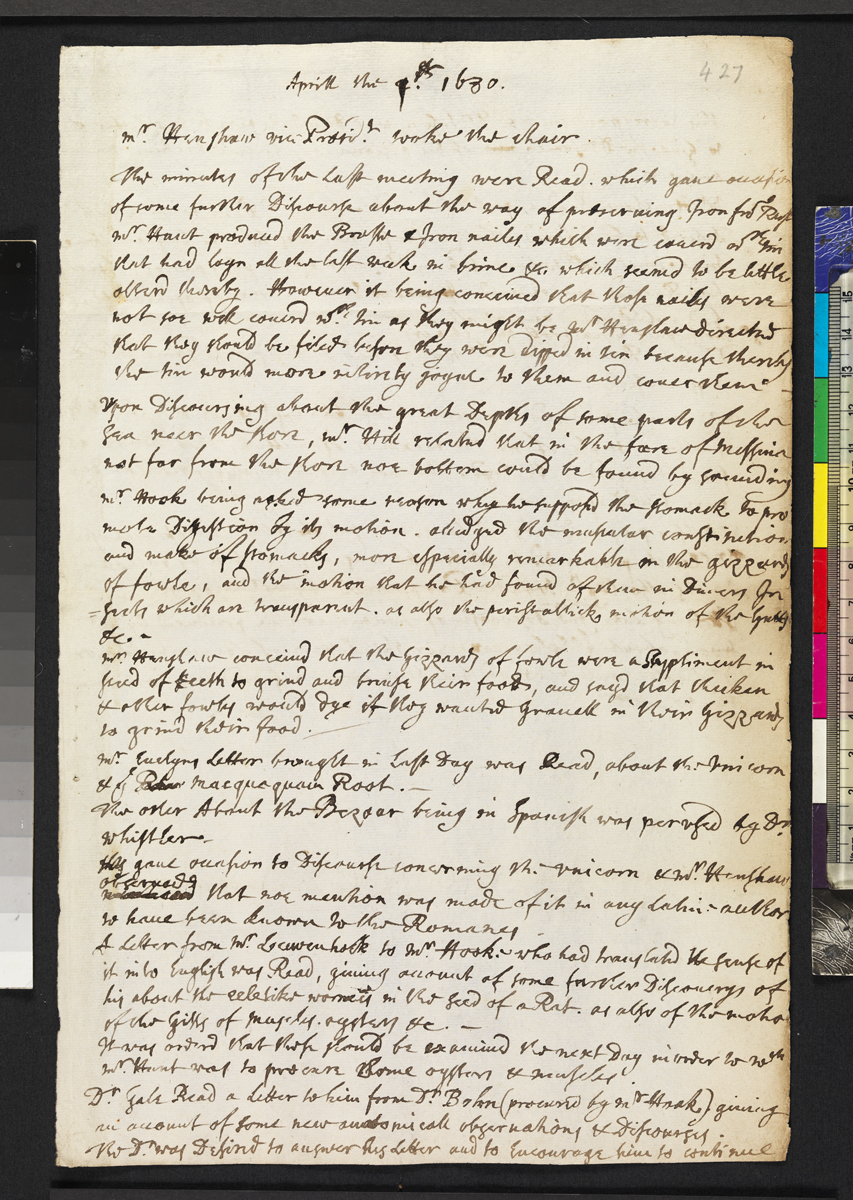 427
Aprill the 1st: 1680.
mr. Henshaw vice Presidt. tooke the chair.
The minutes of the Last meeting were Read. which gave occasion
of some further Discourse about the way of preserving Iron fro Rust
mr. Hunt produced the Brasse & Iron nailes which were coverd wth Tin
that had layn all the last week in brine &c. which seemed to be little
alterd thereby. However it being conceived that those nailes were
not soe well coverd wth. tin as they might be mr Henshaw directed
that they should be filed before they were dipped in tin because thereby
the tin would more intirely joyne to them and cover them
Upon Discoursing about the great Depths of some parts of the
Sea near the shore, mr. Hill related that in the fare of Messina
not far from the shore noe bottom could be found by sounding
mr Hook being asked some reason why he supposd the stomack to pro
mote Digestion by its motion. alledged the muscular constitution
and make of stomacks, more especially remarkable in the gizzards
of fowle, and the motion that he had found of them in Divers In
=sects which are transparent. as also the peristaltick motion of the Gutts
&c.-
mr. Henshaw conceivd that the Gizzards of fowle were a Suppliment in
steed of teeth to grind and bruise their food, and sayd that chicken
& other fowles would dye if they wanted Gravell in their Gizzards
to grind their food.
mr. Evelyns Letter brought in last Day was Read, about the Unicorn
& ye macquaquain Root.-
The other About the Bezoar being in Spanish was perused by Dr.
Whistler.
this gave occasion to Discourse concerning the unicorn & mr. Henshaw
observed
that noe mention was made of it in any Latine author
to have been known to the Romanes
A Letter from mr. Leeuwenhoek to mr. Hook. who had translated the sense of
it into English was Read, giving account of some further Discoverys of
his about the eelelike wormes in the seed of a Rat. as also of the motion
of the Gills of muscles. oysters &c.-
It was orderd that these should be examined the next Day in order to wch
mr. Hunt was to procure some oysters & muscles.
Dr. Gale Read a Letter to him from Dr. Bohn (procured by mr Haak) giving
an account of some new anatomicall observations & Discourses.
the Dr. was Desired to answer his Letter and to Encourage him to continue